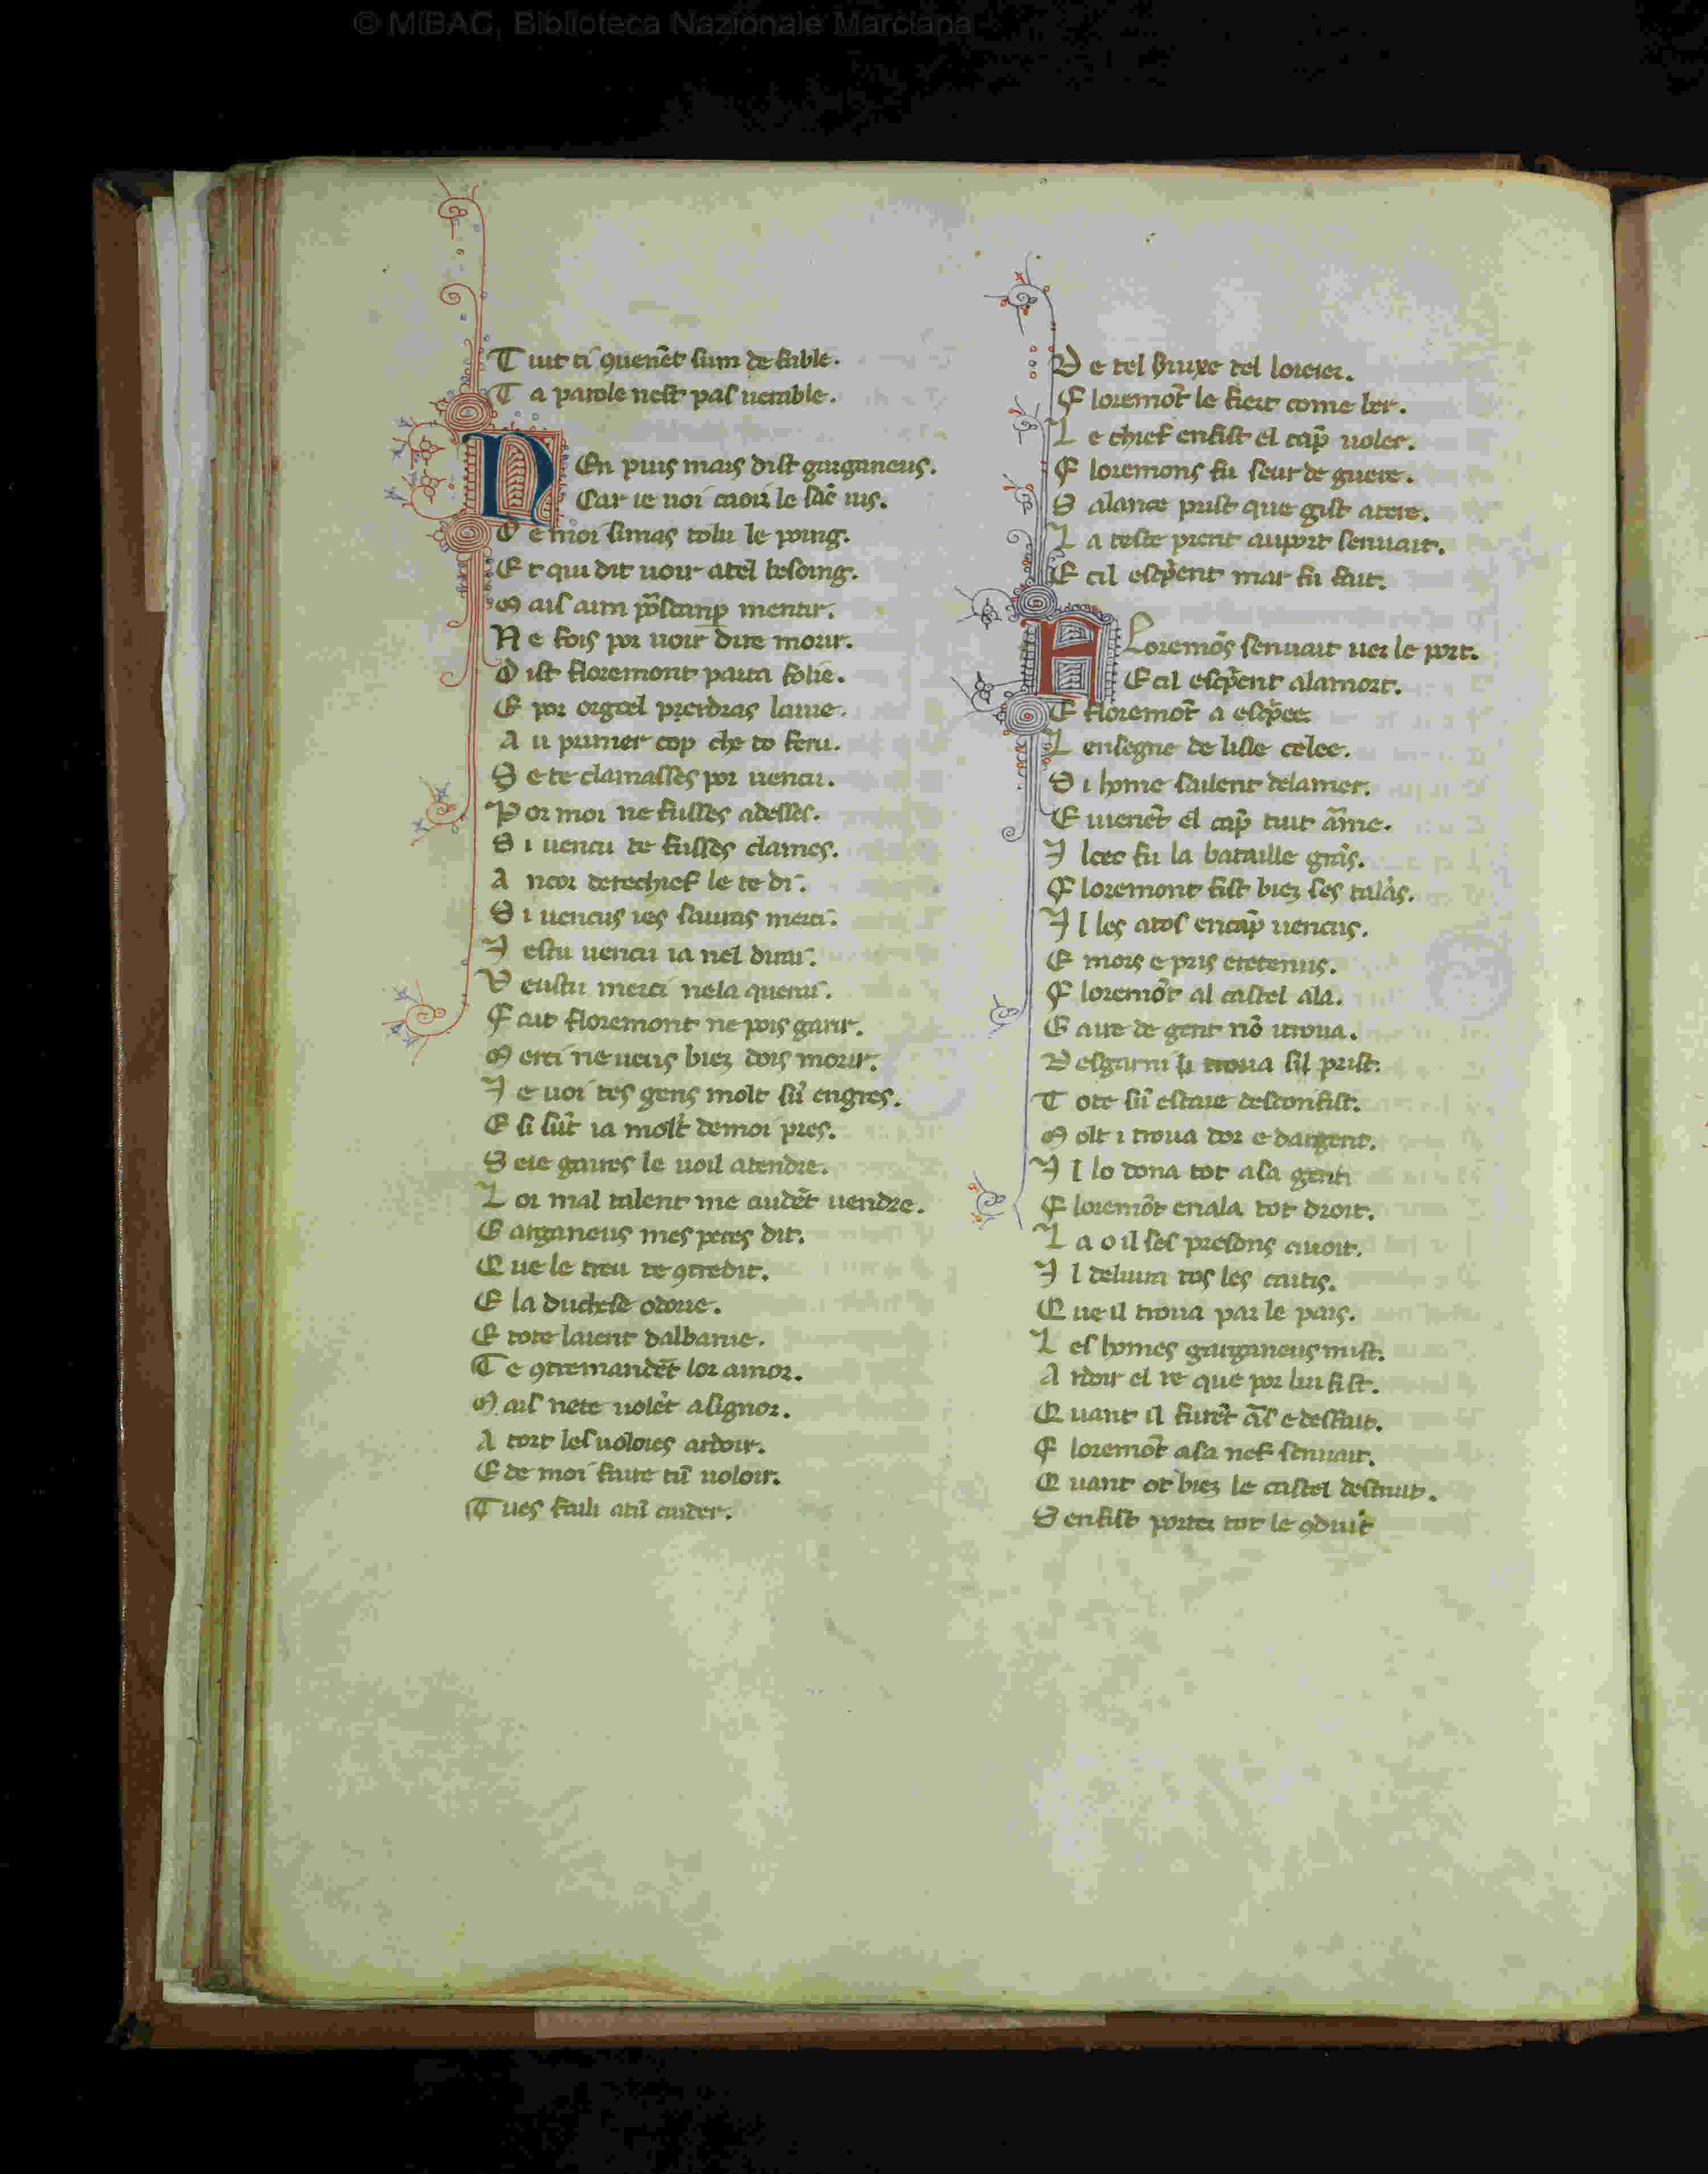 © MiBAC, Biblioteca Nazionale Marciana
T uit ti ꝯuenēt sum de fable.
T a parole nest pas uerable.
N En puis mais dist garganeus.
Car ie uoi caoir le sāc ius.
D e moi si mas tolu le poing.
E t qui dit uoir a tel besoing.
M ais aim mentir.
N e fois por uoir dire morir.
D ist floremont par ta folie.
E por orgoel perdras la uie.
A u primer cop che to feru.
S e te clamasses por uencu.
P or moi ne fusses adesses.
S i uencu te fusses clames.
A ncor derechief le te di.
S i uencus ies sauras merci.
I estu uencu ia nel dirai.
V eustu merci ne la querai.
F ait floremont ne pois garir.
M erci ne ueus biez dois morir.
I e uoi tes gens molt sūt engres.
E si sūt ia molt de moi pres.
S e ie gaires le uoil atendre.
L or mal talent me cudēt uendre.
G arganeus mes peres dit.
Q ue le treu te ꝯtredit.
E la duchese otorie.
E tote la ient dalbanie.
T e ꝯtremandēt lor amor.
M ais ne te uolēt a signor.
A tort les uoloies ardoir.
E de moi faire tū uoloir.
T u es failli a tū cuider.
D e tel seruixe tel loieier.
F loremōt le fiert come ber.
L e chief en fist el cāp uoler.
F loremons fu seur de guere.
S a lance prist que gist a tere.
L a teste prent au port senuait.
E cil escꝑent mar fu fait.
F Loremōs senuait uer le port.
E cil escꝑent a la mort.
E floremōt a escꝑee.
L ensegne de lisle celee.
S i home sailent de la mer.
E uienēt el cāp tuit āme.
I lec fu la bataille grās.
F loremont fist biez ses talās.
I l les a tos en cāp uencus.
E mors e pris e retenus.
F loremōt al castel ala.
G aire de gent nō i troua.
D esgarni li troua sil prist.
T ote sū estaie desconfist.
M olt i troua dor e dargent.
I l lo dona tot a sa gent.
F loremōt en ala tot droit.
L a o il ses presons auoit.
I l deliura tos les caitis.
Q ue il troua par le pais.
L es homes garganeus mist.
A rdoir el re que por lui fist.
Q uant il furēt ās e destruit.
F loremōt a sa nef senuait.
Q uant ot biez le castel destruit.
S en fist porter tot le ꝯduit